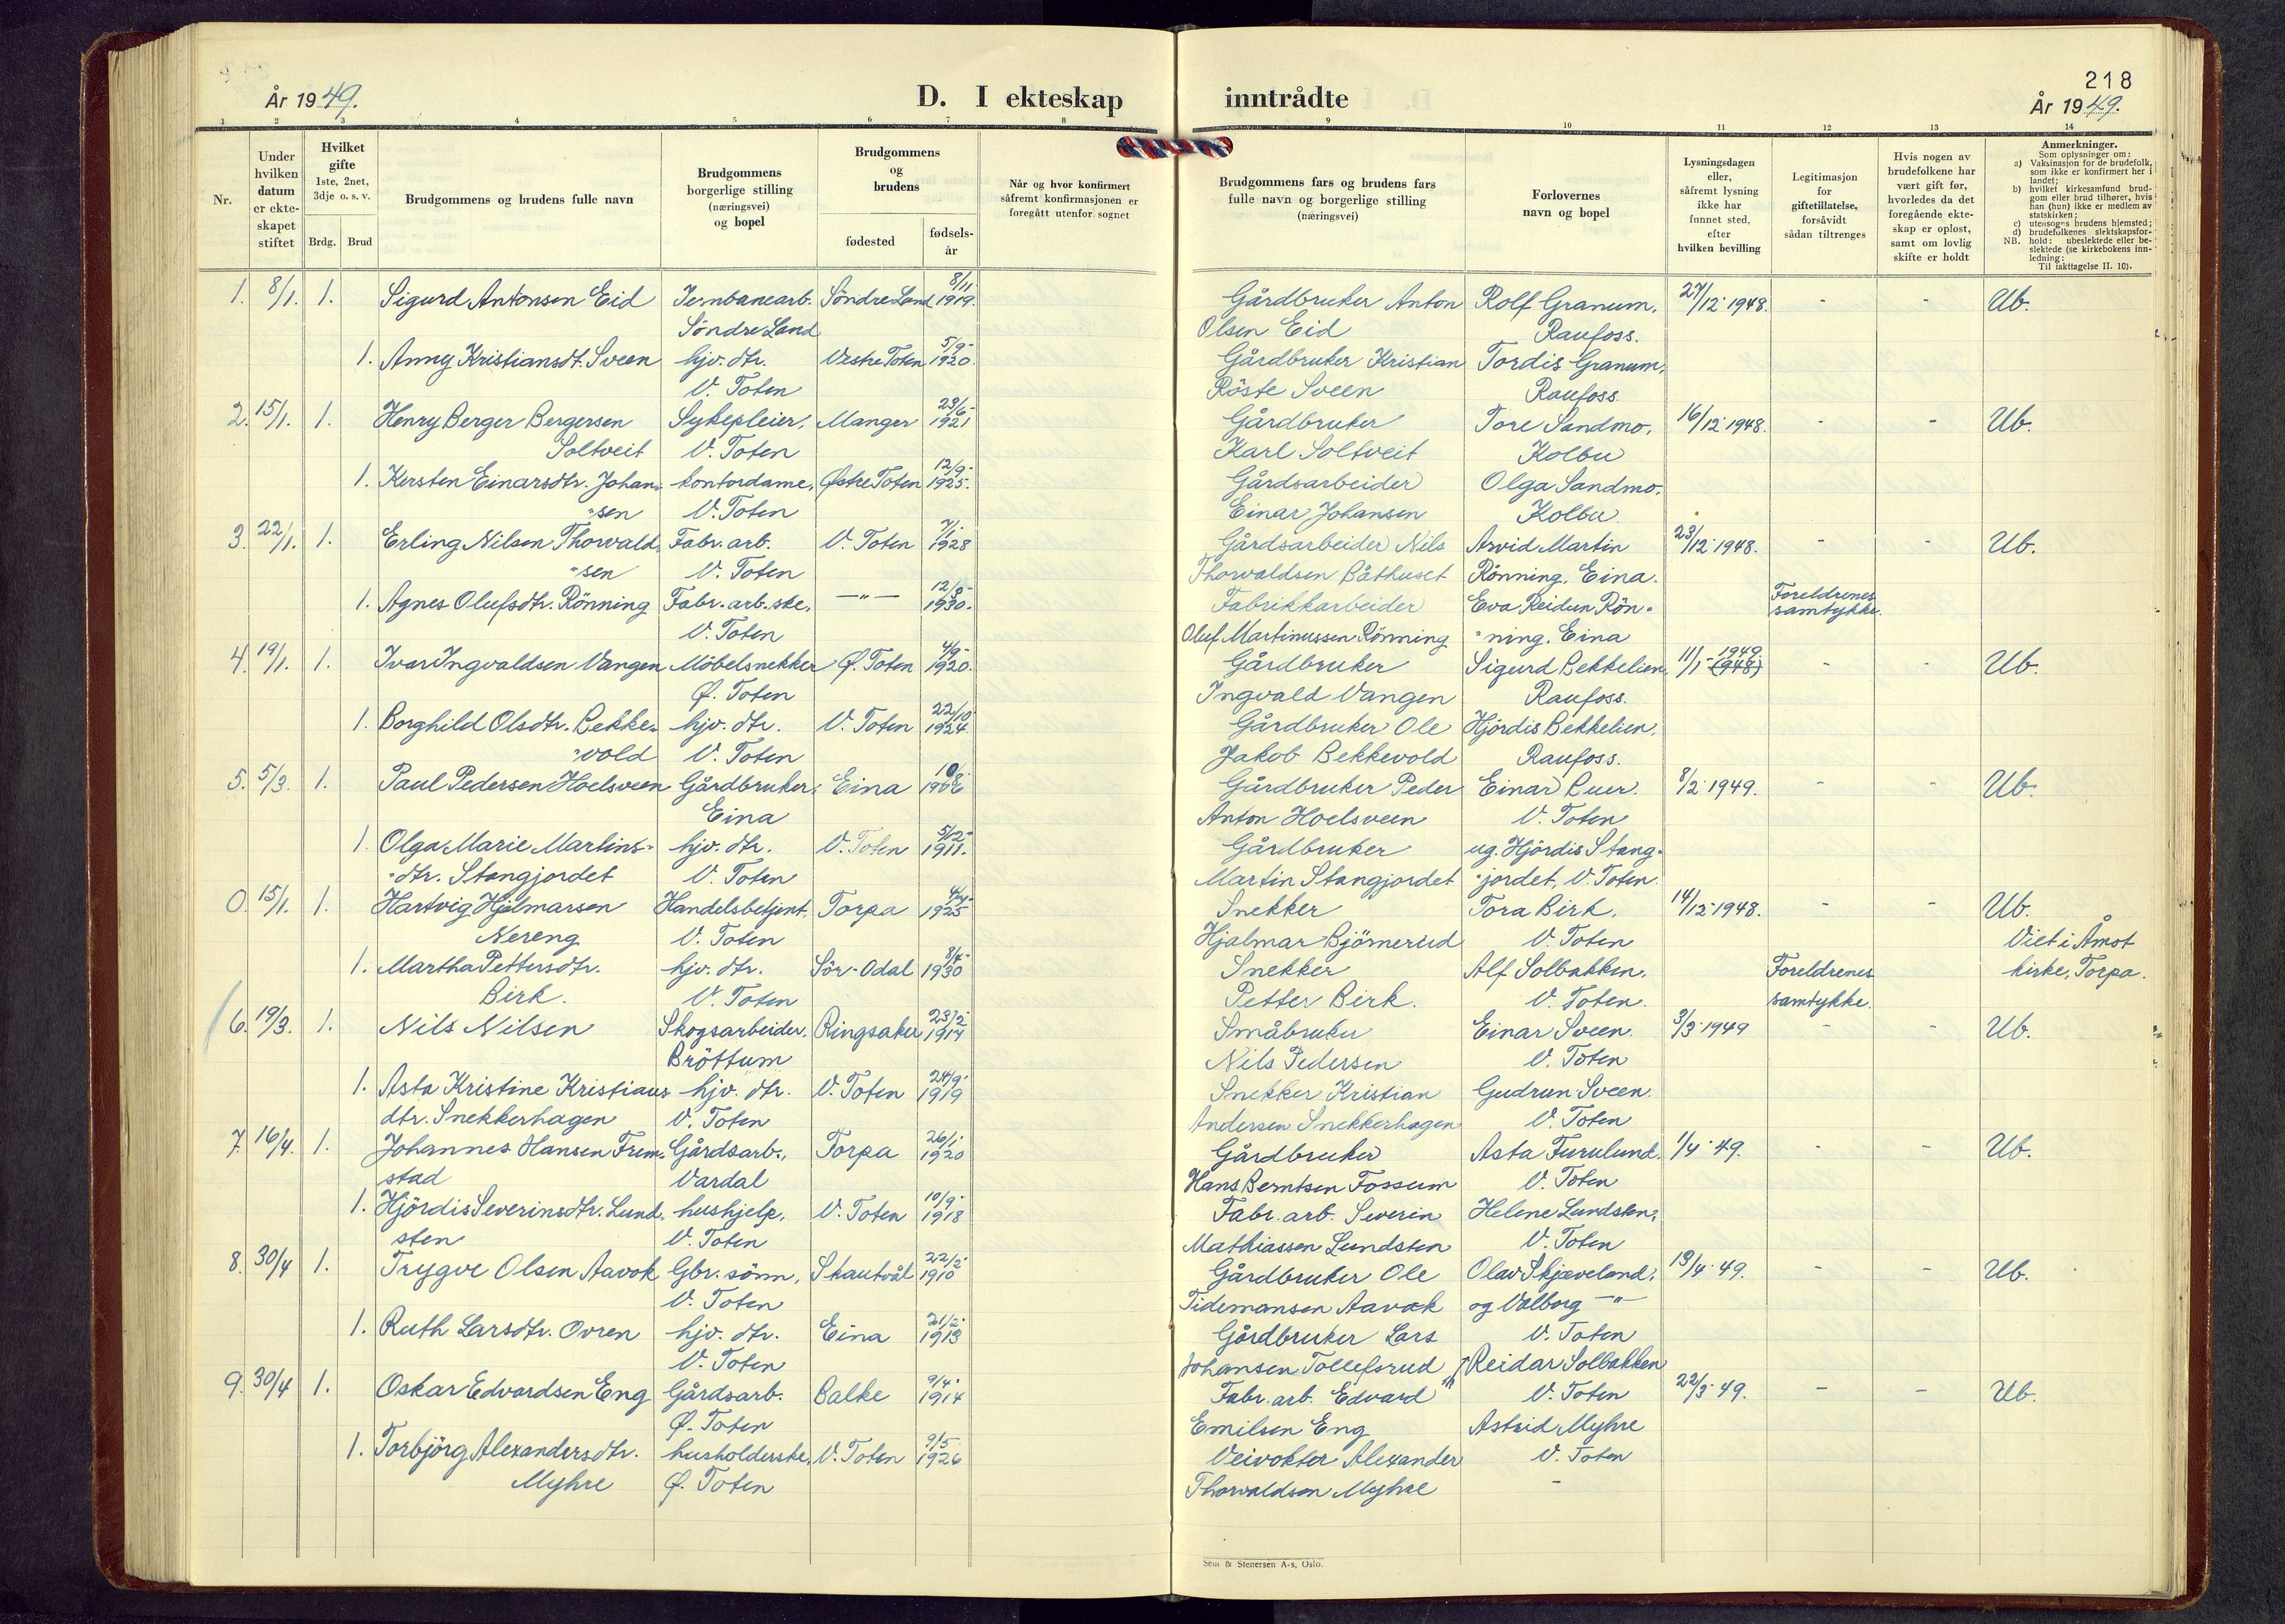 År 1949.
D. I ekteskap
1 2 3 4 5 6 7 8
Nr.
Under hvilken datum er ekteskapet stiftet
Hvilket gifte 1ste, 2net, 3dje o. s. v.
Brdg. Brud
Brudgommens og brudens fulle navn
Brudgommens borgerlige stilling (næringsvei) og bopel
Brudgommens og brudens
fødested
fødsels-år
Når og hvor konfirmert såfremt konfirmasjonen er foregått utenfor sognet
1. 8/1. 1. Sigurd Antonsen Eid Jernbanearb. Söndre Land 8/11 1919.
Söndre Land
1. Anny Kristiansdt. Sveen hjv. dtr. Vestre Toten 5/9- 1920.
V. Toten
2. 15/1. 1. Henry Berger Bergersen Sykepleier, Manger 23/6- 1921
Soltveit V. Toten
1. Kersten Einarsdtr. Johan- kontordame, Østre Toten 12/9- 1925.
"sen V. Toten
3. 22/1. 1. Erling Nilsen Thorvald- Fabr. arb. V. Toten 7/1- 1928
"sen V. Toten
1. Agnes Olufsdtr. Rönning Fabr. arb. ske, —"— 12/8- 1930.
V. Toten
4. 19/1. 1. Ivar Ingvaldsen Vangen Möbelsnekker Ø. Toten 4/9- 1920.
Ø. Toten
1. Borghild Olsdtr. Bekke- hjv. dtr. V. Toten 22/10 1924.
"vold V. Toten
5. 5/3. 1. Paul Pedersen Hoelsveen Gårdbruker, Eina
Eina
1. Olga Marie Martins- hjv. dtr. V. Toten 5/12- 1911.
"dtr. Stangjordet V. Toten
0. 15/1. 1. Hartvig Hjelmarsen Handelsbetjent, Torpa 4/4- 1925
Nereng V. Toten
1. Martha Pettersdtr. hjv. dtr. Sör-Odal 8/4- 1930
Birk. V. Toten
6. 19/3. 1. Nils Nilsen Skogsarbeider, Ringsaker 23/2- 1914
Bröttum
1. Asta Kristine Kristians hjv. dtr. V. Toten 24/9- 1919
dtr. Snekkerhagen V. Toten
7. 16/4. 1. Johannes Hansen Frem- Gårdsarb., Torpa 26/1- 1920
stad Vardal
1. Hjördis Severinsdtr. Lund- hushjelp, V. Toten 10/9- 1918
sten V. Toten
8. 30/4 1. Trygve Olsen Aavok Gbr. sönn, Skautvål 22/2- 1910
V. Toten
1. Ruth Larsdtr. Ovren hjv. dtr. Eina 21/2- 1913
V. Toten
9. 30/4 1. Oskar Edvardsen Eng Gårdsarb. Balke 9/4- 1914
Ø. Toten
1. Torbjörg Alexandersdtr. husholderske, V. Toten 9/5 1926
Myhre Ø. Toten
218
inntrådte
År 1949.
9 10 11 12 13 14
Brudgommens fars og brudens fars fulle navn og borgerlige stilling (næringsvei)
Forlovernes navn og bopel
Lysningsdagen eller, såfremt lysning ikke har funnet sted, efter hvilken bevilling
Legitimasjon for giftetillatelse, forsåvidt sådan tiltrenges
Hvis nogen av brudefolkene har vært gift før, hvorledes da det foregående ekteskap er opløst, samt om lovlig skifte er holdt
Anmerkninger.
Som oplysninger om:
a) Vaksinasjon for de brudefolk, som ikke er konfirmert her i landet;
b) hvilket kirkesamfund brudgom eller brud tilhører, hvis han (hun) ikke er medlem av statskirken;
c) utensogns brudens hjemsted;
d) brudefolkenes slektskapsforhold: ubeslektede eller beslektede (se kirkebokens innledning:
NB. Til iakttagelse II. 10).
Gårdbruker Anton Rolf Granum, 27/12- 1948. - - Ub.
Olsen Eid Raufoss.
Gårdbruker Kristian Tordis Granum,
Röste Sveen Raufoss
Gårdbruker Tore Sandmo, 16/12- 1948. - - Ub.
Karl Soltveit Kolbu
Gårdsarbeider Olga Sandmo,
Einar Johansen Kolbu
Gårdsarbeider Nils Arvid Martin 23/12- 1948. - - Ub.
Thorvaldsen Båthuset Rönning, Eina.
Fabrikkarbeider Eva Reidun Rön- Foreldrenes samtykke.
Oluf Martinussen Rönning "ning. Eina
Gårdbruker Sigurd Bekkelien, 11/1- 1949. (948) - - Ub.
Ingvald Vangen Raufoss.
Gårdbruker Ole Hjördis Bekkelien,
Jakob Bekkevold Raufoss.
Gårdbruker Peder Einar Buer. 8/2- 1949. - - Ub.
Anton Hoelsveen V. Toten
Gårdbruker ug. Hjördis Stang-
Martin Stangjordet "jordet, V. Toten.
Snekker Tora Birk, 14/12- 1948. - - Ub.
Hjalmar Björnerud V. Toten Viet i Åmot
Snekker Alf Solbakken, Foreldrenes kirke, Torpa.
Petter Birk. V. Toten. samtykke.
Småbruker Einar Sveen. 3/3- 1949 - - Ub.
Nils Pedersen V. Toten
Snekker Kristian Gudrun Sveen.
Andersen Snekkerhagen V. Toten
Gårdbruker Asta Furulund. 1/4- 49. - - Ub.
Hans Berntsen Fossum V. Toten
Fabr. arb. Severin Helene Lundsten,
Mathiassen Lundsten V. Toten
Gårdbruker Ole Olav Skjæveland, 19/4- 49. - - Ub.
Tidemansen Aavok og Valborg —"—
Gårdbruker Lars V. Toten
Johansen Tollefsrud Reidar Solbakken
Fabr. arb. Edvard V. Toten 22/3- 49. - - Ub.
Emilsen Eng Astrid Myhre
Veivokter Alexander V. Toten
Thorvaldsen Myhre -
Sem & Stenersen A-s, Oslo.